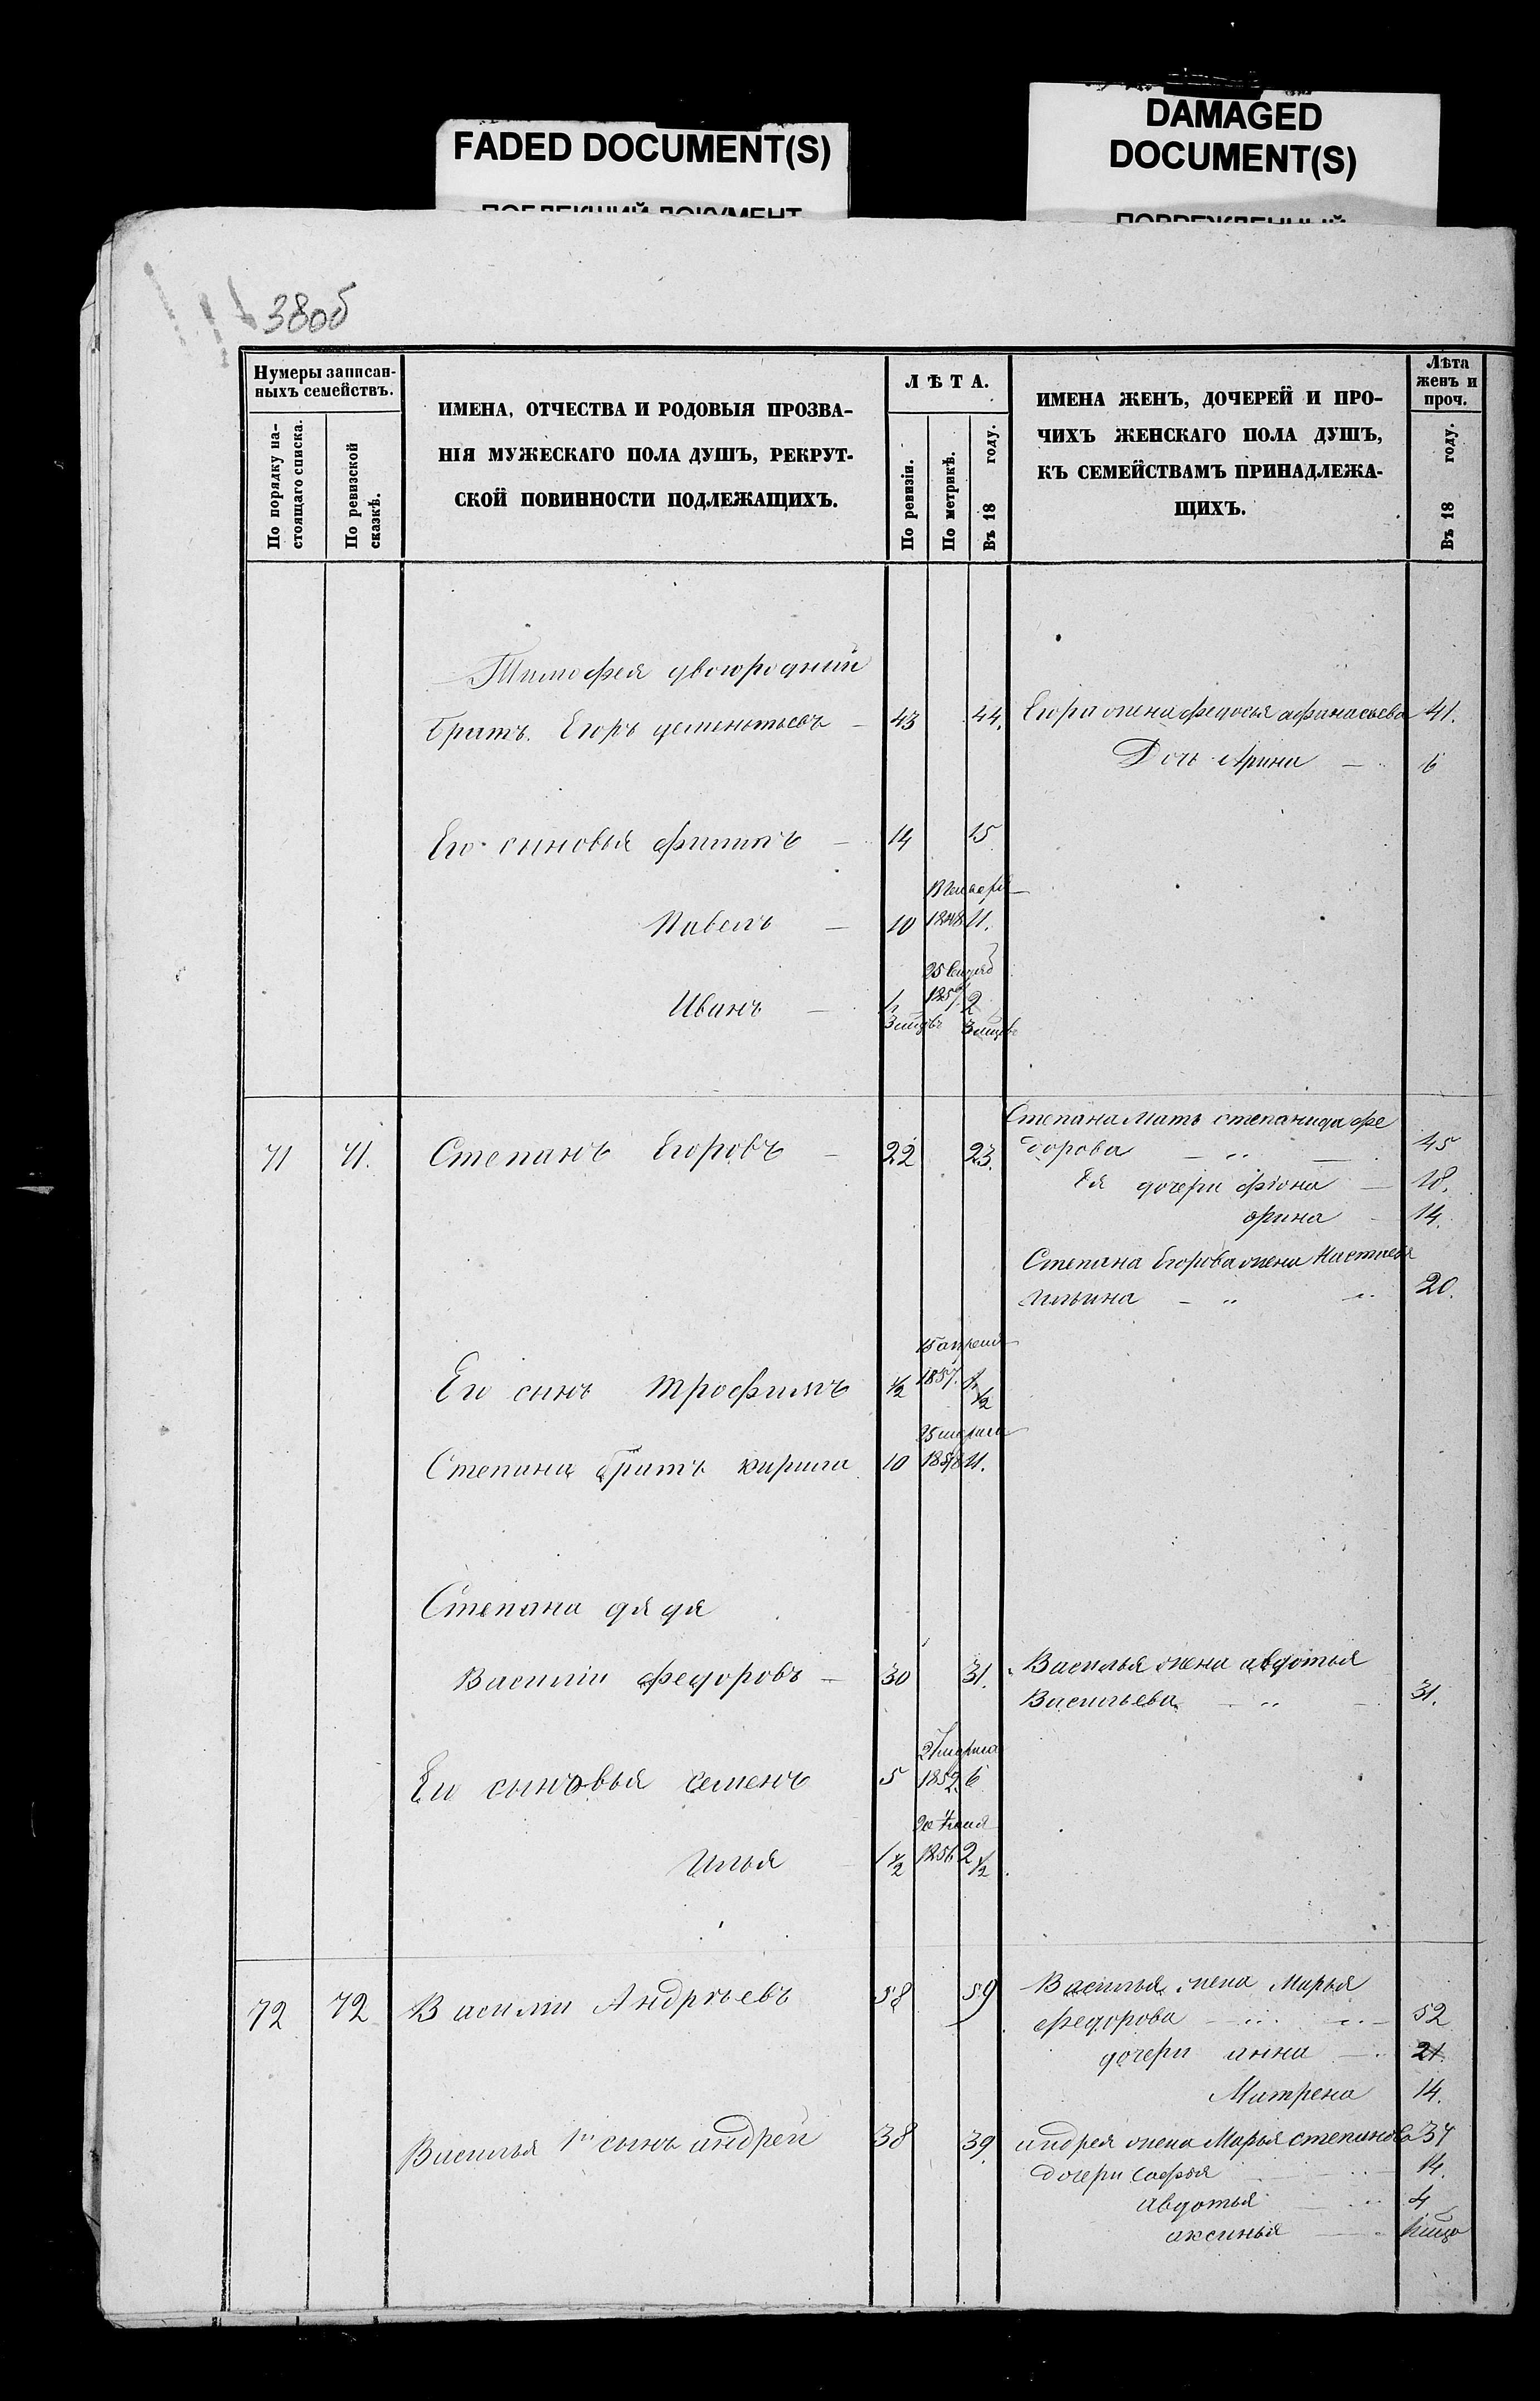 FADED DOCUMENT(S)
DAMAGED
DOCUMENT(S)
38об
Нумеры записан-
ныхъ семействъ.
По порядку на-
стоящаго списка.
По ревизской
сказкѣ.
ИМЕНА, ОТЧЕСТВА И РОДОВЫЯ ПРОЗВА-
НІЯ МУЖЕСКАГО ПОЛА ДУШЪ, РЕКРУТ-
СКОЙ ПОВИННОСТИ ПОДЛЕЖАЩИХЪ.
ЛѢТА.
По ревизіи.
По метрикѣ.
Въ 18 году.
ИМЕНА ЖЕНЪ, ДОЧЕРЕЙ И ПРО-
ЧИХЪ ЖЕНСКАГО ПОЛА ДУШЪ,
КЪ СЕМЕЙСТВАМЪ ПРИНАДЛЕЖА-
ЩИХЪ.
Лѣта
женъ и
проч.
Въ 18 году.
Тимофея двоюродный
братъ Егоръ дементьевъ 43 44. Егора жена федосья афанасьева 41.
Дочь Арина 6
Его сыновья филипъ 14 15
Павелъ 10 1848 11.
25
Иванъ 1/2 1857 2
3 мцвъ 3 мцвъ
Степана мать степанида фе
71 71. Степанъ Егоровъ 22 23. дорова 45
Ея дочери фіона 18.
орина 14.
Степана Егорова жена Настасья
Ильина 20.
15 апреля
Его сынъ трофимъ 1/2 1857. 1 1/2
25 марта
Степана братъ кирила 10 1848 11.
Степана дядя
Василій федоровъ 30 31. Василья жена авдотья
Васильева 31.
27 марта
Его сыновья семенъ 5 1852. 6
20 Июля
Илья 1 1/2 1856 2 1/2
72 72 Василій Андрѣевъ 58 59 Василья жена Марья
федорова 52
дочери анна 21.
Матрена 14.
Василья 1й сынъ андрей 38 39. андрея жена Марья степанова 37
дочери софья 14.
авдотья 4
аксинья